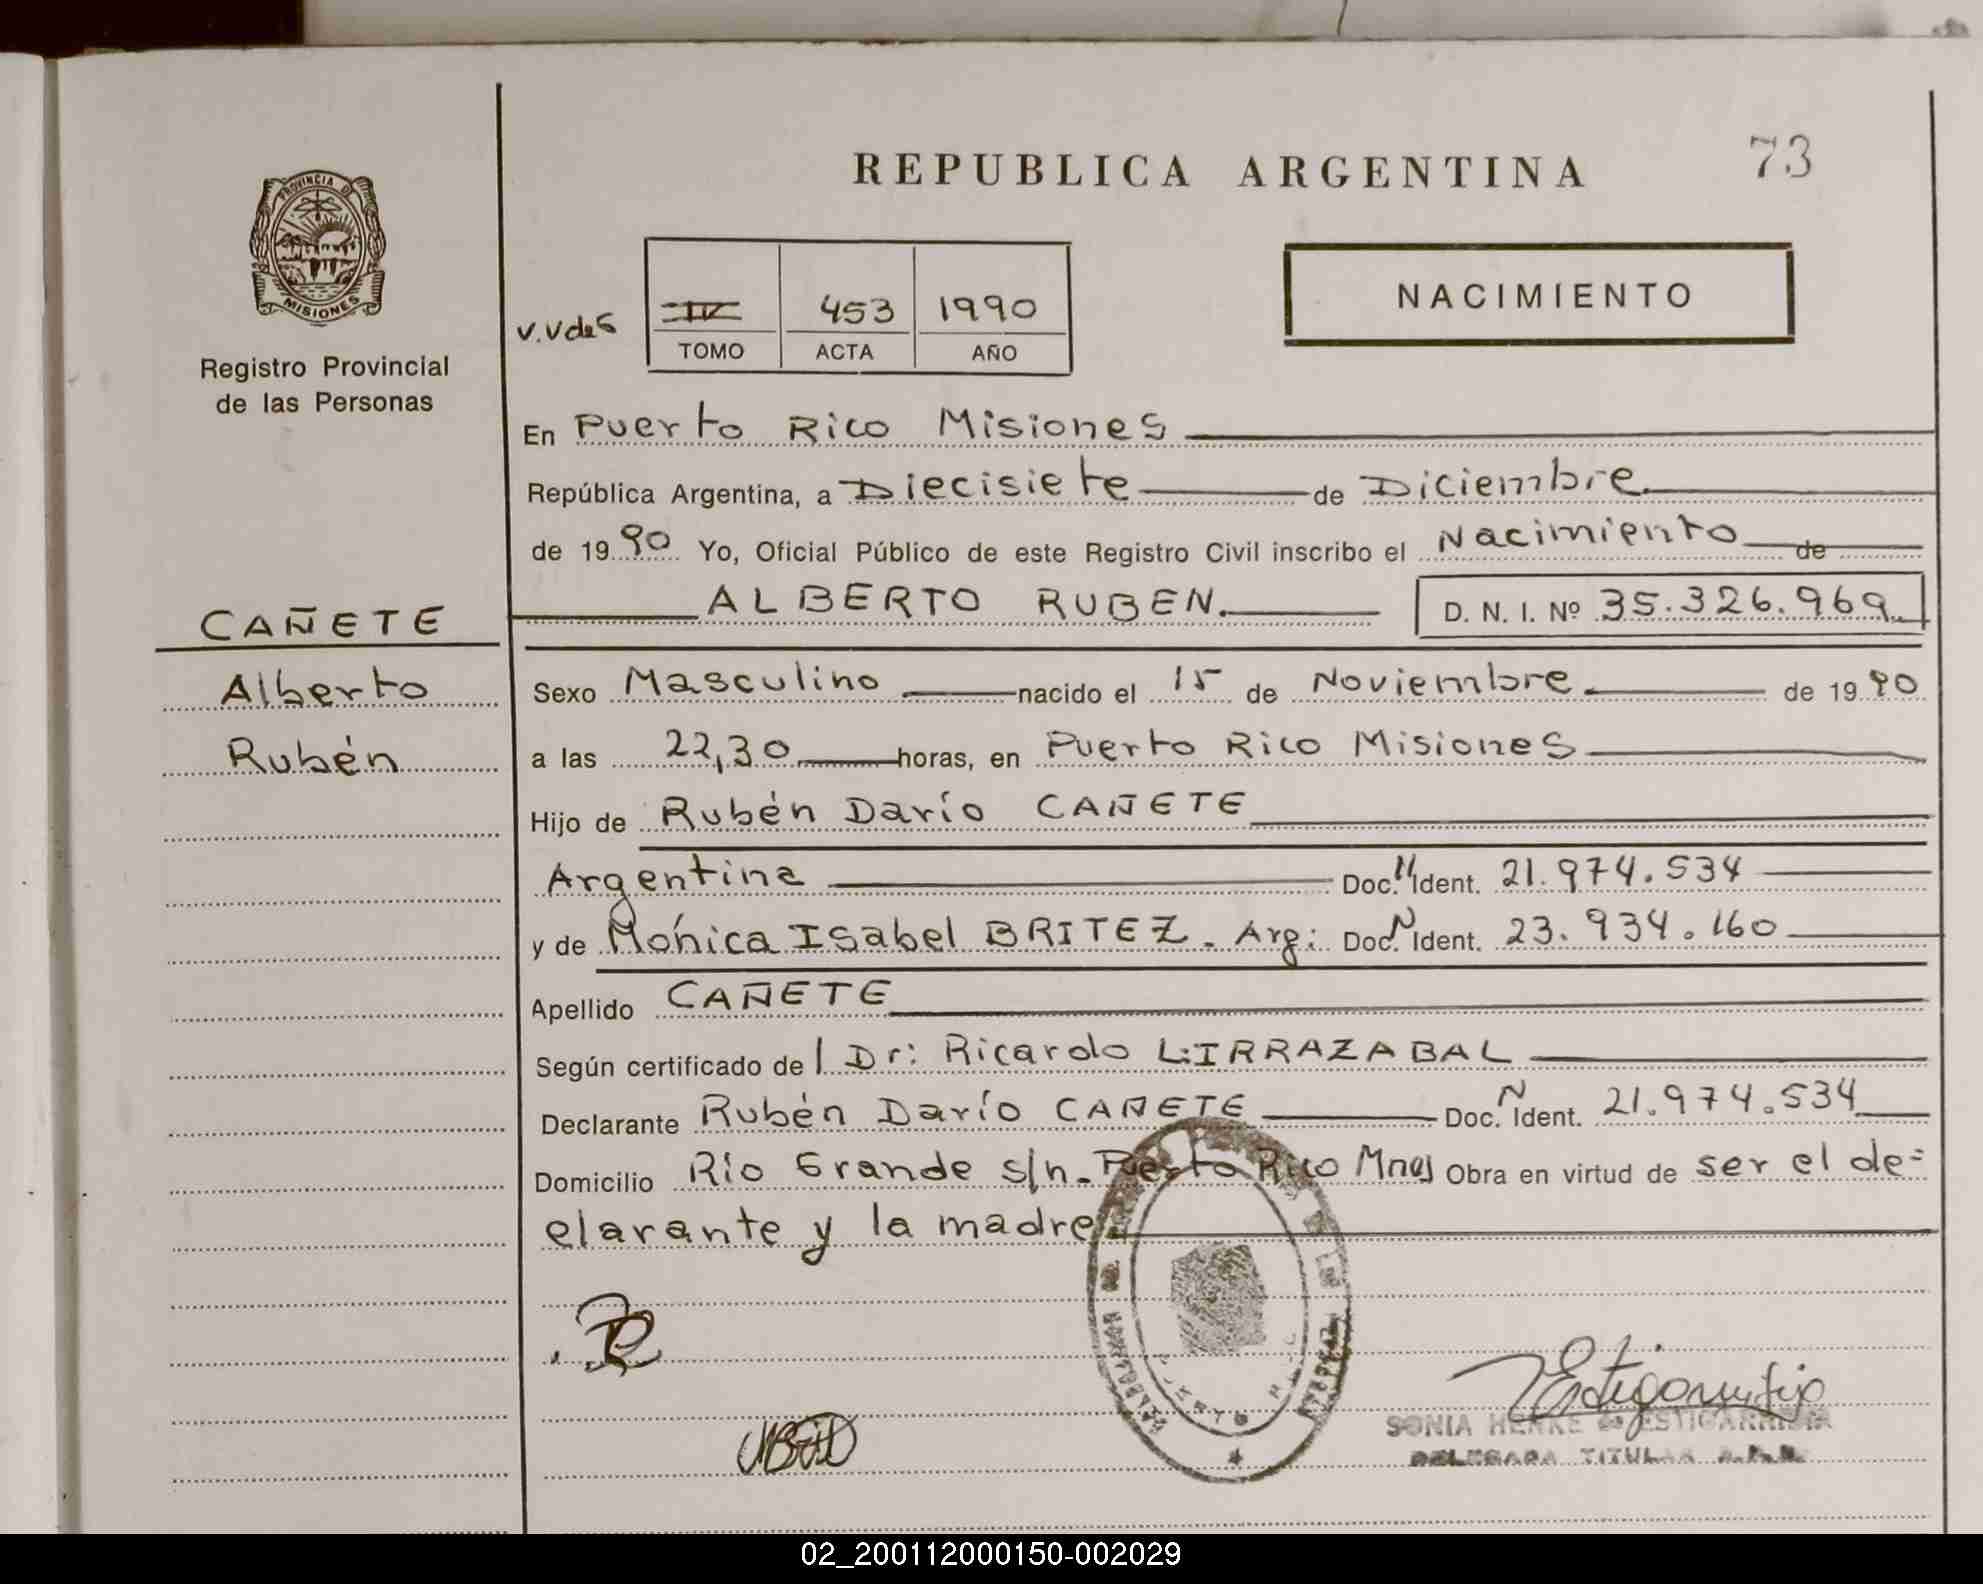 REPUBLICA ARGENTINA
73
PROVINCIA D
MISIONES
Registro Provincial
de las Personas
V.V de S
IV 453 1990
TOMO ACTA AÑO
NACIMIENTO
En Puerto Rico Misiones
República Argentina, a Diecisiete de Diciembre
de 1990 Yo, Oficial Público de este Registro Civil inscribo el Nacimiento de
ALBERTO RUBEN. D. N. I. Nº 35.326.969
CAÑETE
Alberto
Rubén
Sexo Masculino nacido el 15 de Noviembre de 1990
a las 22,30 horas, en Puerto Rico Misiones
Hijo de Rubén Darío CAÑETE
Argentina Doc. N Ident. 21.974.534
y de Mónica Isabel BRITEZ. Arg: Doc. N Ident. 23.934.160
Apellido CAÑETE
Según certificado del Dr: Ricardo LIRRAZABAL
Declarante Rubén Darío CAÑETE Doc. N Ident. 21.974.534
Domicilio Río Grande s/n. Puerto Rico Mnes Obra en virtud de ser el de=
clarante y la madre
PUERTO RICO
SONIA HENKE de ESTIGARRIBIA
DELEGADA TITULAR
02_200112000150-002029